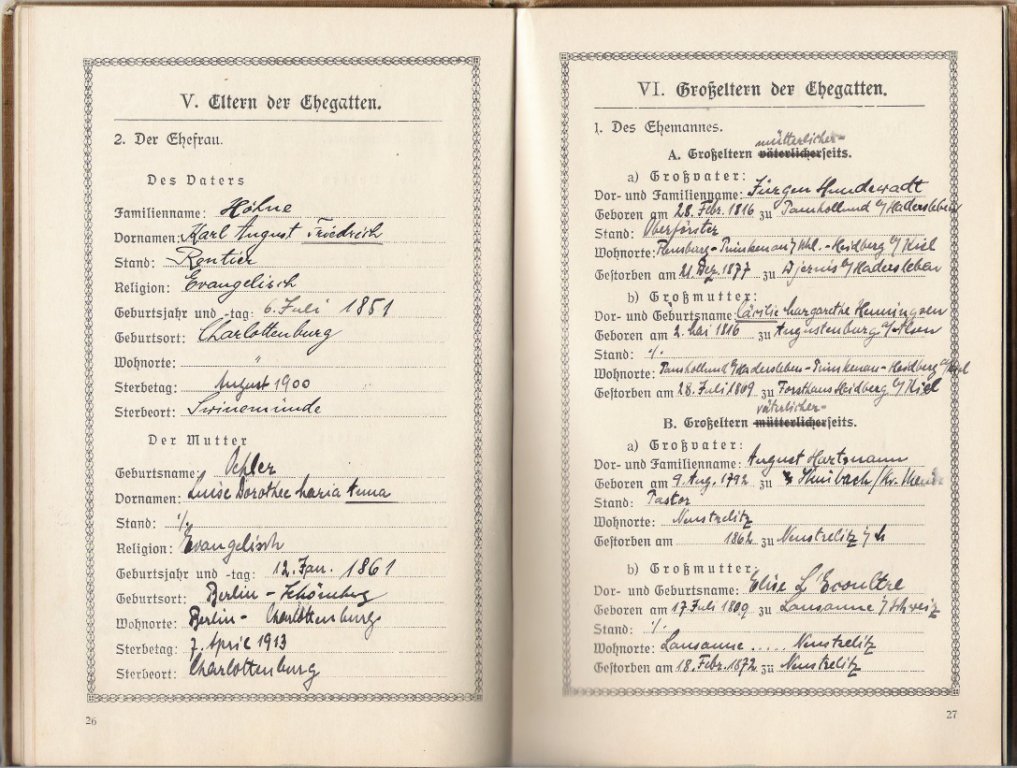 V. Eltern der Ehegatten.
2. Der Ehefrau.
Des Vaters
Familienname: Höhne
Vornamen: Karl August Friedrich
Stand: Rentier
Religion: Evangelisch
Geburtsjahr und -tag: 6. Juli 1851
Geburtsort: Charlottenburg
Wohnorte: "
Sterbetag: August 1900
Sterbeort: Swinemünde
Der Mutter
Geburtsname: Oehler
Vornamen: Luise Dorothee Maria Anna
Stand: ./.
Religion: Evangelisch
Geburtsjahr und -tag: 12. Jan. 1861
Geburtsort: Berlin - Schöneberg
Wohnorte: Berlin - Charlottenburg
Sterbetag: 7. April 1913
Sterbeort: Charlottenburg
26
VI. Großeltern der Ehegatten.
1. Des Ehemannes.
mütterlicher-
A. Großeltern väterlicherseits.
a) Großvater:
Vor- und Familienname: Jürgen Hundewadt
Geboren am 28. Febr. 1816 zu Pamhollund b/Hadersleben
Stand: Oberförster
Wohnorte: Flensburg - Prinkenau / Schl. - Heidberg b/Kiel
Gestorben am 21. Dez. 1877 zu Djernis b/Hadersleben
b) Großmutter:
Vor- und Geburtsname: Cäcilie Margarethe Henningsen
Geboren am 2. Mai 1816 zu Augustenburg a/Alsen
Stand: ./.
Wohnorte: Pamhollund b/Hadersleben - Prinkenau - Heidberg b/Kiel
Gestorben am 28. Juli 1809 zu Forsthaus Heidberg b/Kiel
väterlicher-
B. Großeltern mütterlicherseits.
a) Großvater:
Vor- und Familienname: August Hartmann
Geboren am 9. Aug. 1792 zu
Stand: Pastor
Wohnorte: Neustrelitz
Gestorben am 1862 zu Neustrelitz
b) Großmutter:
Vor- und Geburtsname: Elise L'Ecoultre
Geboren am 17 Juli 1809 zu Lausanne / Schweiz
Stand: ./.
Wohnorte: Lausanne ..... Neustrelitz
Gestorben am 18. Febr. 1872 zu Neustrelitz
27